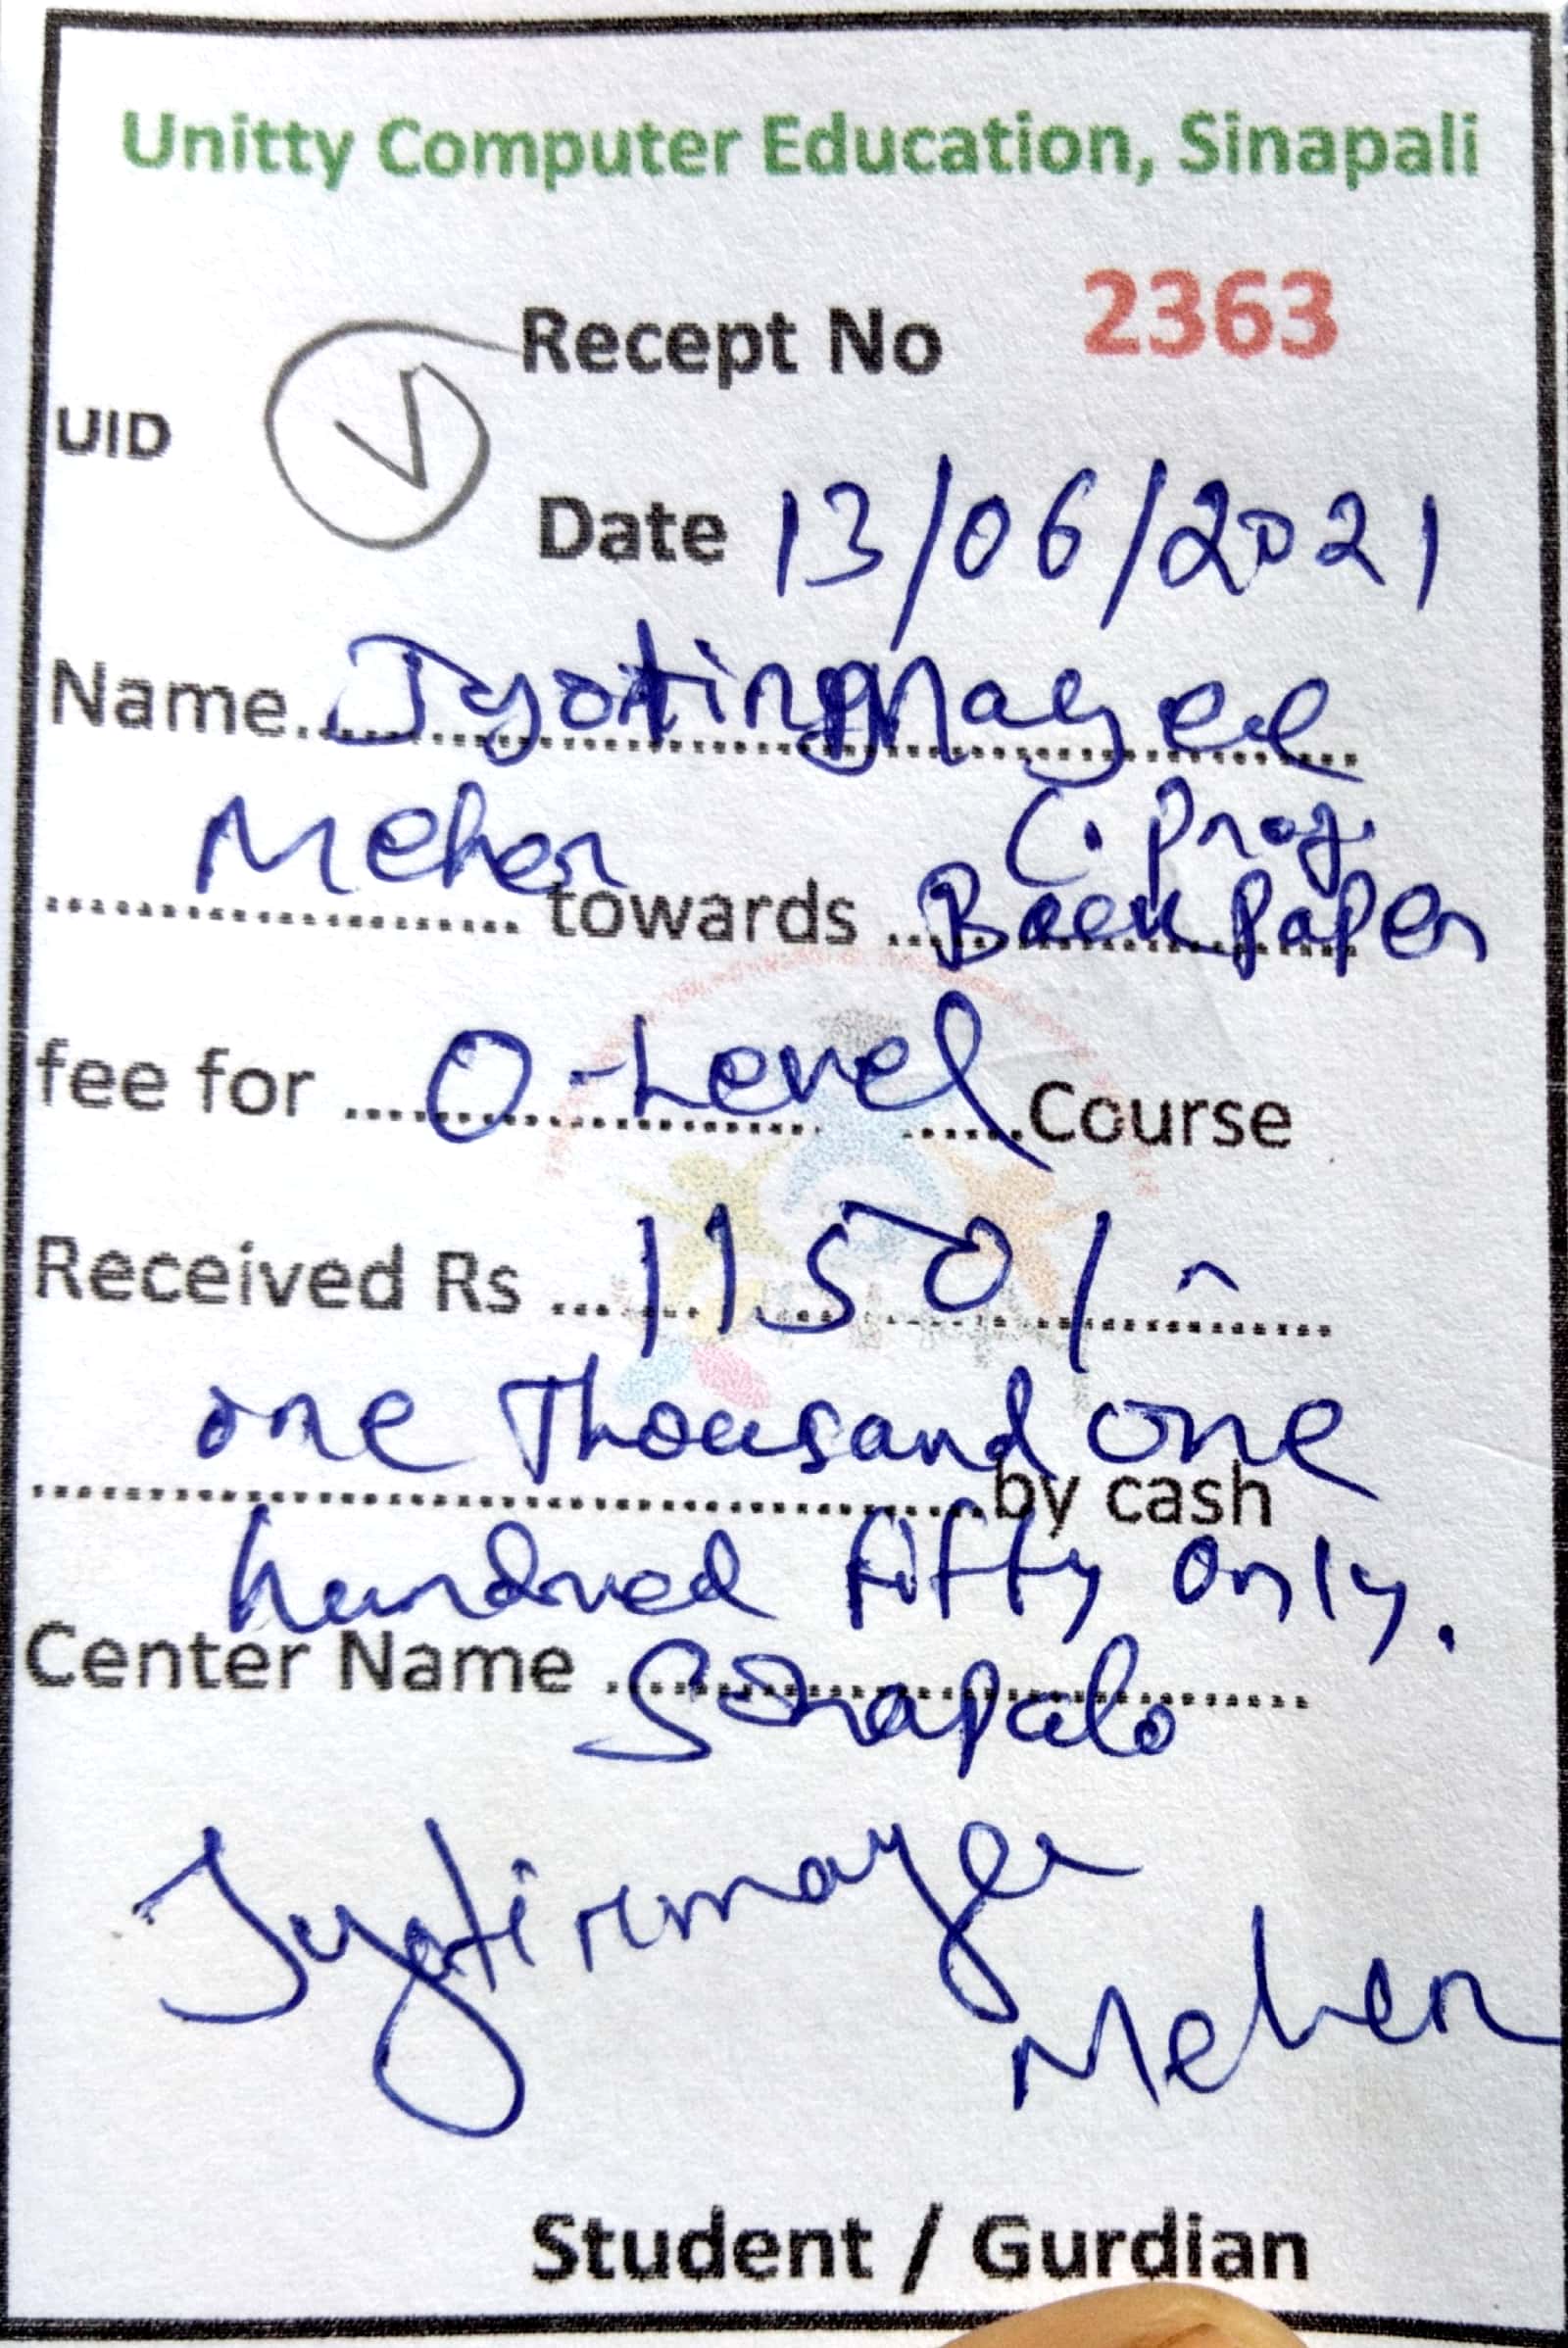 Unitty Computer Education, Sinapali
Recept No 2363
UID
Date 13/06/2021
Name Jyotirmayee
Meher C. Prog.
towards Back Paper
fee for O-Level Course
Received Rs 1150/-
one Thousand one
by cash
hundred fifty only.
Center Name Sinapali
Jyotirmayee
Meher
Student / Gurdian